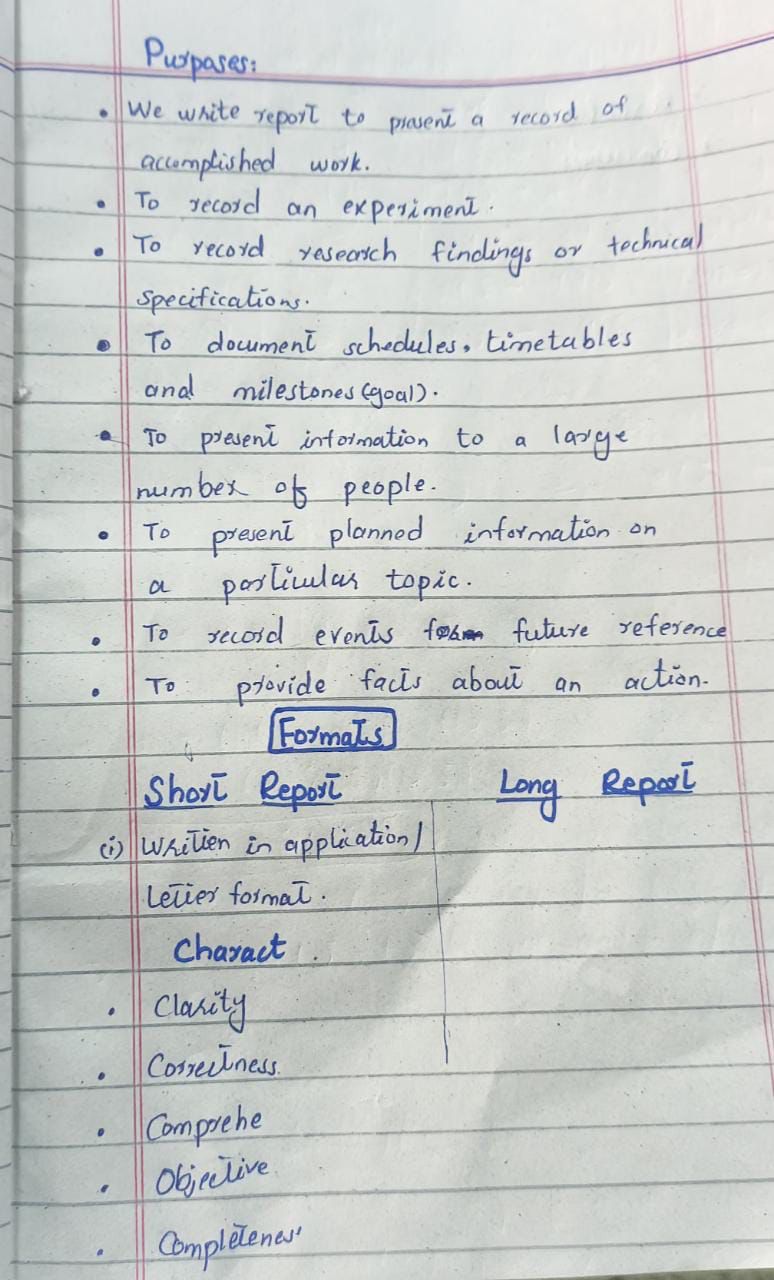 Purposes:
• We write report to present a record of
accomplished work.
• To record an experiment.
• To record research findings or technical
specifications.
• To document schedules, timetables
and milestones (goal).
• To present information to a large
number of people.
• To present planned information on
a particular topic.
• To record events future reference
• To provide facts about an action.
Formats
Short Report Long Report
(i) Written in application/
letter format.
Charact.
• Clarity
• Correctness.
• Comprehe
• Objective
• Completenes